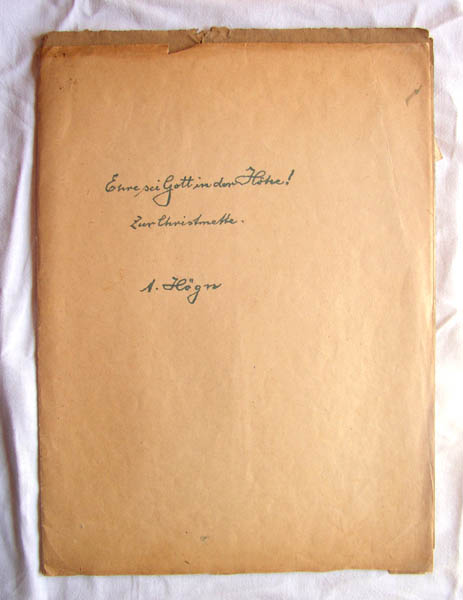 Ehre sei Gott in der Höhe!
Zur Christmette.
A. Högn